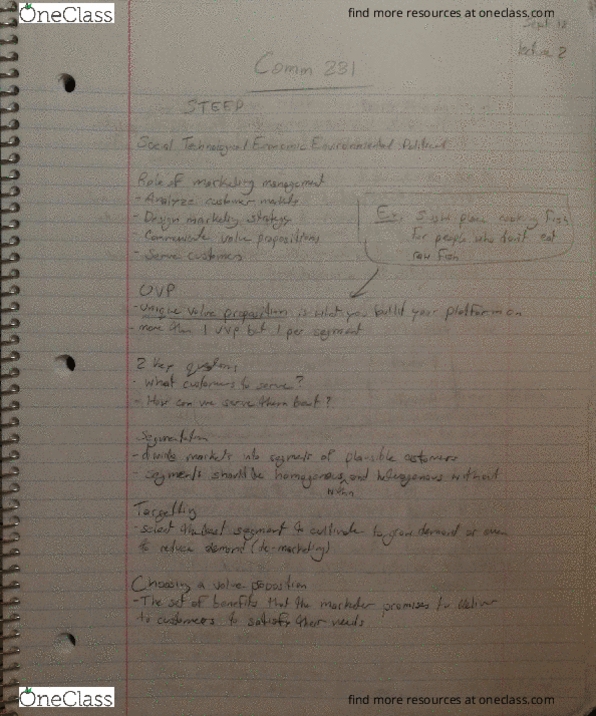 OneClass
find more resources at oneclass.com
Sept 18
lecture 2
Comm 231
STEEP
Social Technological Economic Environmental Political
Role of marketing management
- Analyze customer markets
- Design marketing strategy
- Communicate value propositions
- Serve customers
Ex. Sushi place cooking fish
for people who don't eat
raw fish
UVP
- unique value proposition is what you build your platform on
- more than 1 UVP but 1 per segment
2 key questions
- What customers to serve?
- How can we serve them best?
Segmentation
- divide markets into segments of plausible customers
- segments should be homogenous and heterogenous without
within
Targetting
- select the best segment to cultivate to grow demand or even
to reduce demand (de-marketing)
Choosing a value proposition
- The set of benefits that the marketer promises to deliver
to customers to satisfy their needs
OneClass
find more resources at oneclass.com